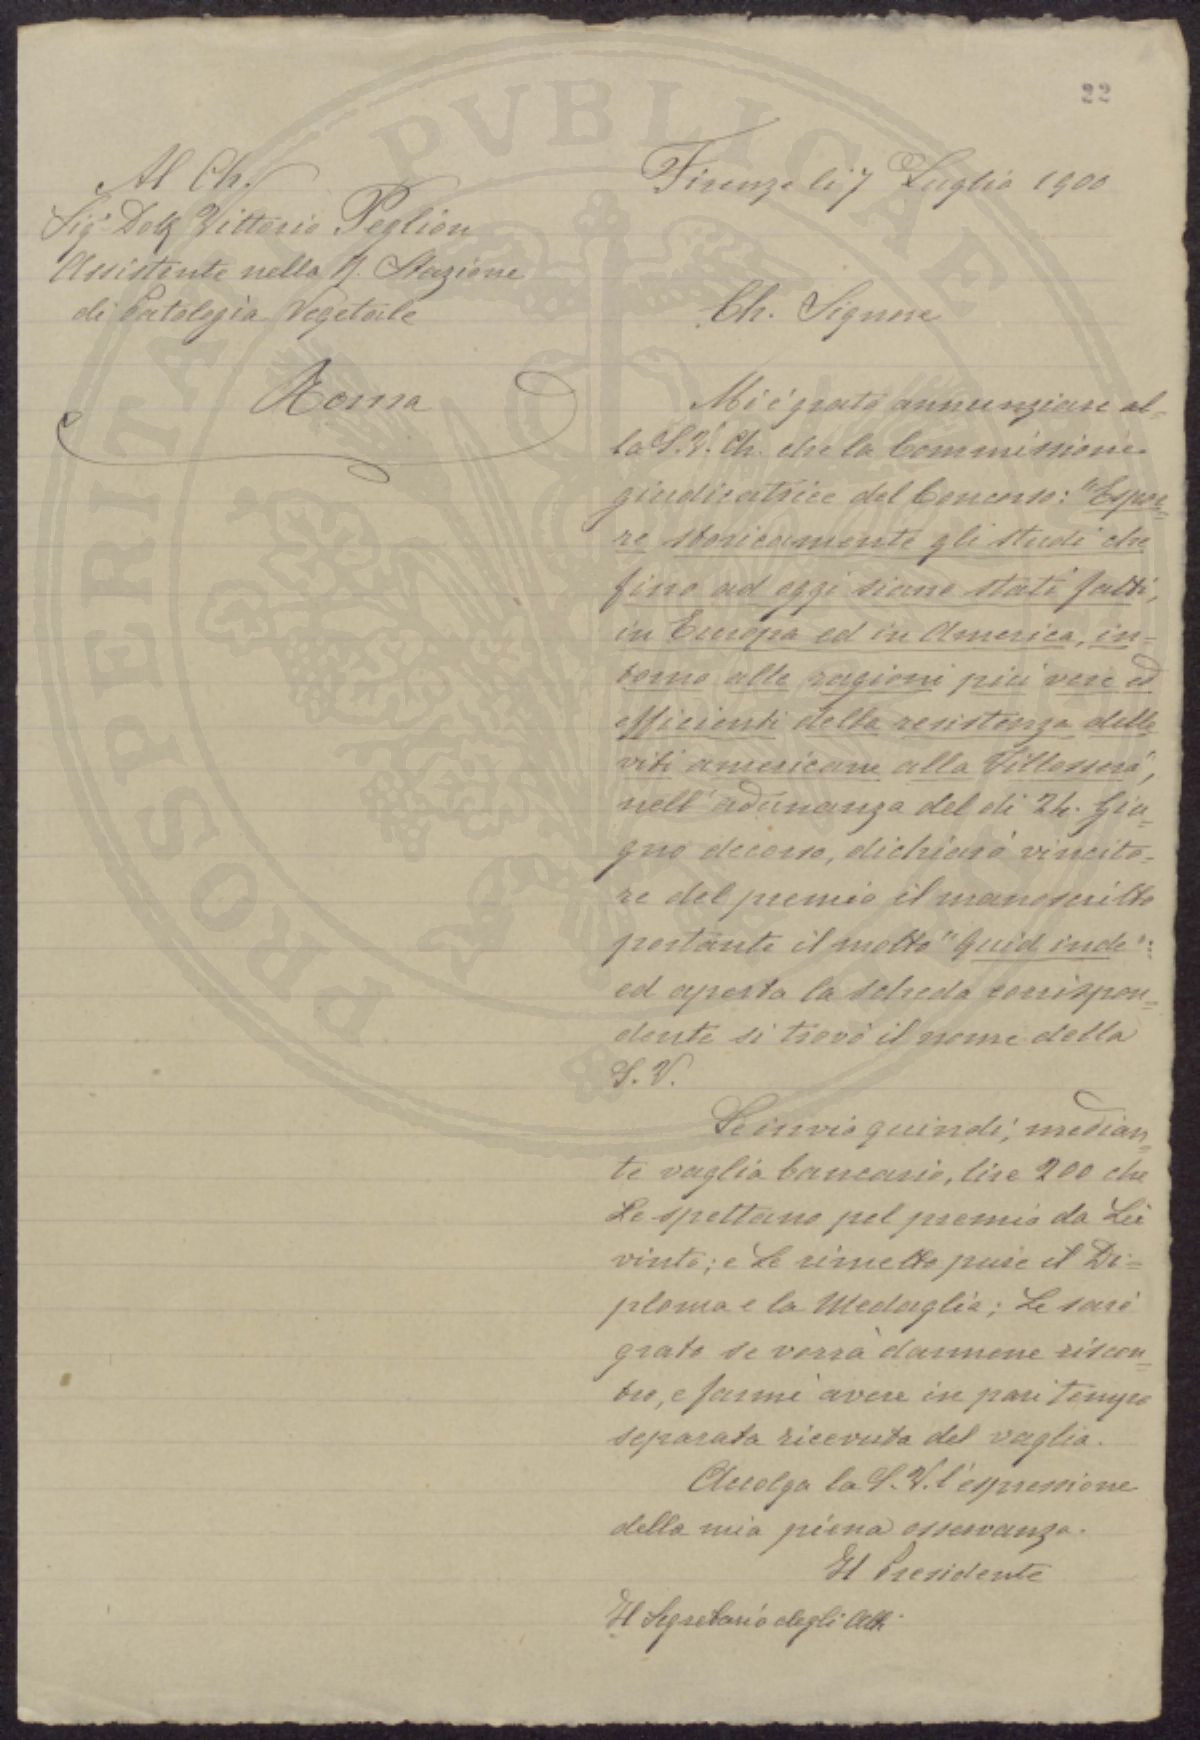 22
Al Ch.
Sig.r Dott. Vittorio Peglion
Assistente nella R. Stazione
di Patologia Vegetale
Roma
Firenze li 7 Luglio 1900
Ch. Signore
Mi è grato annunziare al-
la S.V. Ch. che la Commissione
giudicatrice del Concorso: "Espor-
re storicamente gli studi che
fino ad oggi siano stati fatti,
in Europa ed in America, in-
torno alle ragioni più vere ed
efficienti della resistenza delle
viti americane alla Fillossera",
nell'adunanza del dì 24. Giu-
gno decorso, dichiarò vincito-
re del premio il manoscritto
portante il motto "Quid inde";
ed aperta la scheda corrispon-
dente si trovò il nome della
S. V.
Le invio quindi, median-
te vaglia bancario, lire 200 che
Le spettano pel premio da Lei
vinto; e Le rimetto pure il Di-
ploma e la Medaglia; Le sarò
grato se vorrà darmene riscon-
tro, e farmi avere in pari tempo
separata ricevuta del vaglia.
Accolga la S. V. l'espressione
della mia piena osservanza.
Il Presidente
Il Segretario degli Atti
PROSPERITATI PVBLICAE